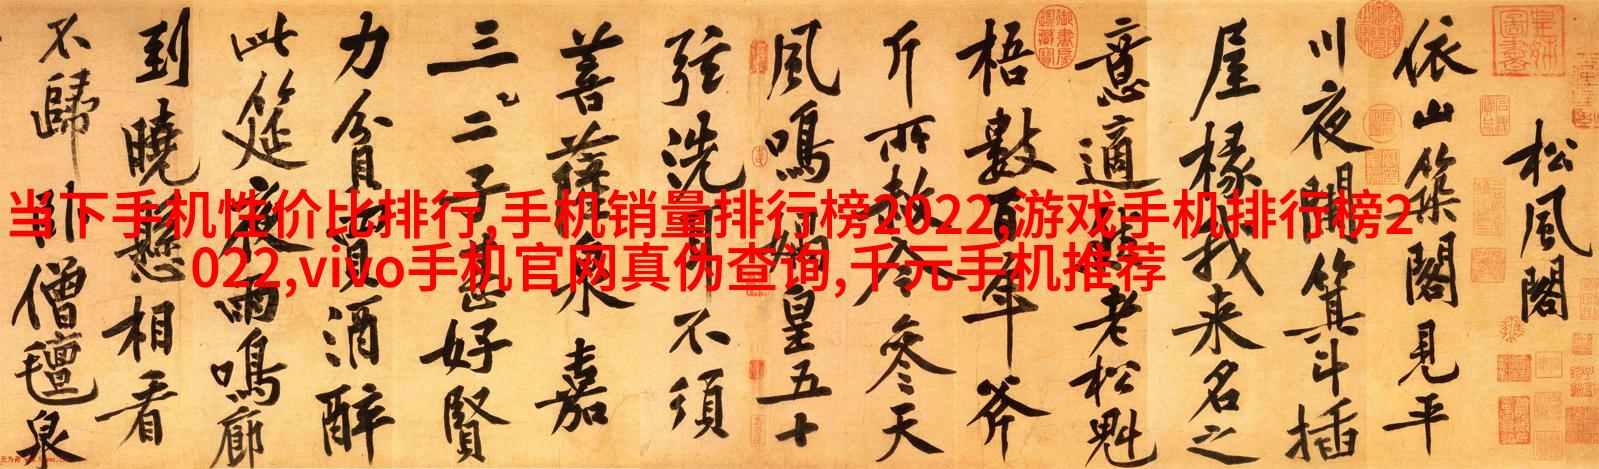 当下手机性价比排行,手机销量排行榜2022,游戏手机排行榜2
022,vivo手机官网真伪查询,千元手机推荐
松風閣
依山築閣見平
川夜闌箕斗插
屋椽我来名之
意適然老松魁
梧數百年斧
斤所赦今參天
風鳴媧皇五十
弦洗耳不須
菩薩泉嘉
三二子甚好賢
力貧買酒醉
此筵夜雨鳴廊
到曉懸相看
不歸卧僧氊泉